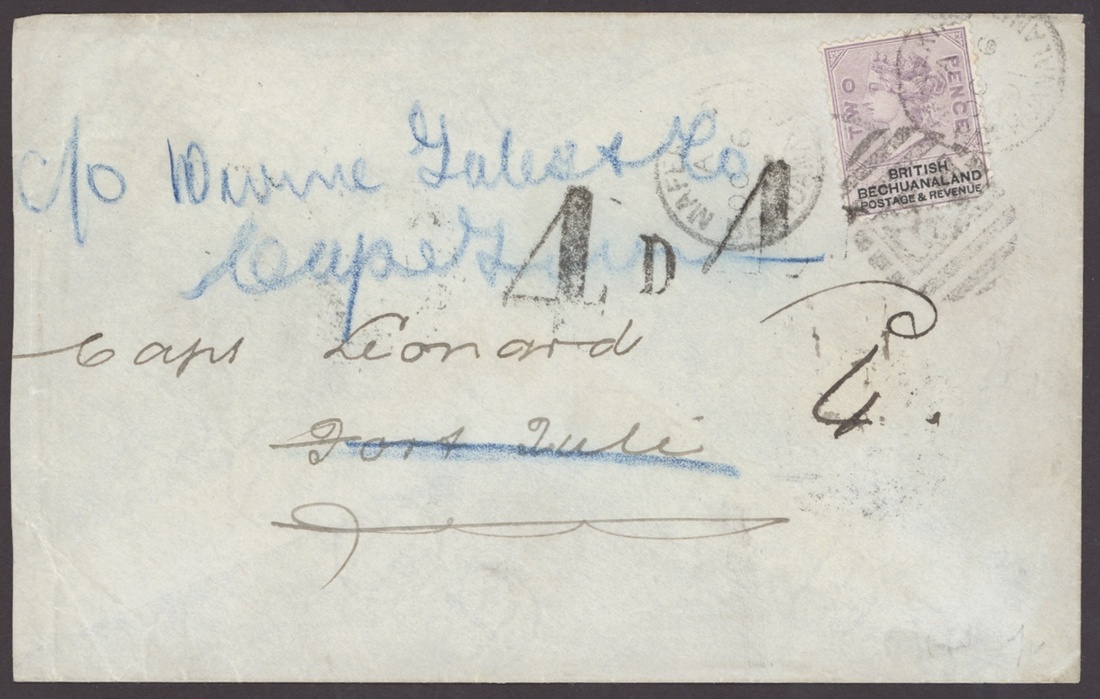 TWO PENCE
BRITISH
BECHUANALAND
POSTAGE & REVENUE
MAFEK
OC 6
c/o Divine Gates & Co
Cape Town
4 D
Capt Leonard
Fort Tuli